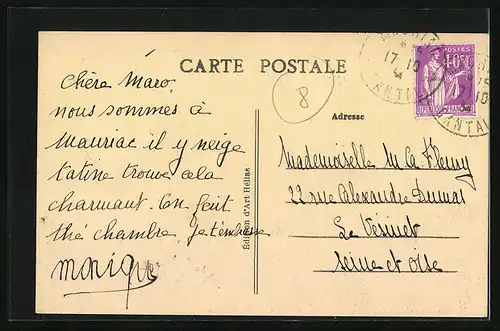 CARTE POSTALE
8
Adresse
Édition d'Art Hélias
17 10
POSTES
Chère Maro,
nous sommes à
Mauriac il y neige
tatine trouve cela
charmant. On fait
thé chambre, Je t'embrasse
Monique
Mademoiselle M. Ca Fleury
22 rue Alexandre Dumas
Le Vésinet
Seine et Oise